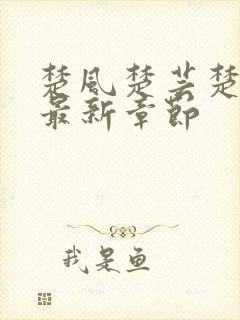 楚风楚芸楚
最新章节
我是鱼